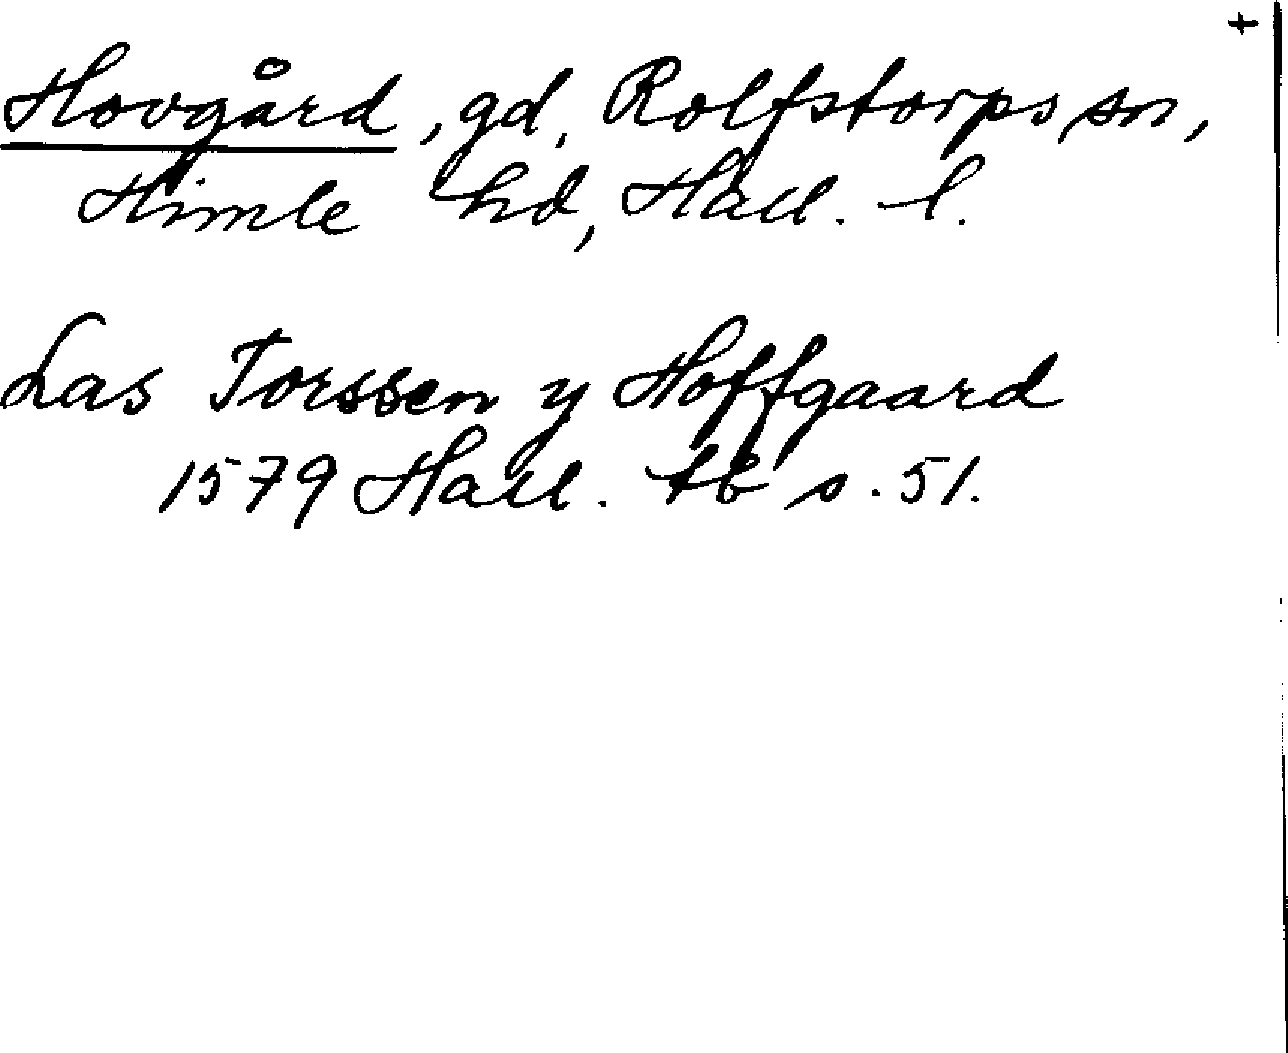 +
Hovgård, gd, Rolfstorps sn,
Himle hd, Hall. l.
Las Torssen y Hoffgaard
1579 Hall. tb s. 51.